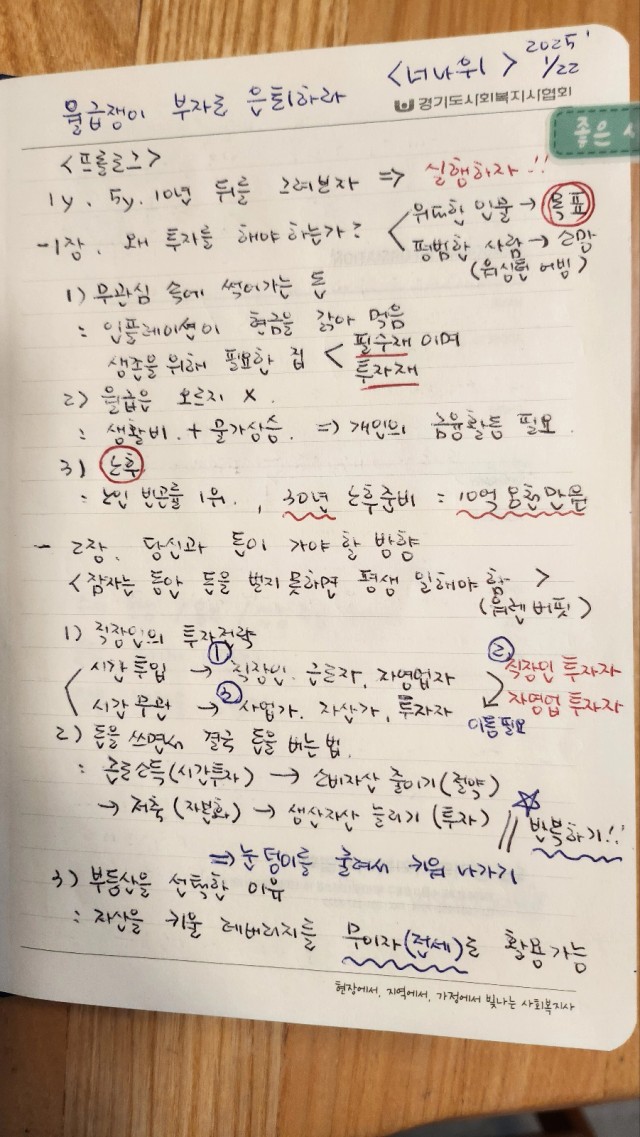 <너나위> 2025'
1/22
월급쟁이 부자로 은퇴하라
경기도사회복지사협회
좋은 사
<프롤로그>
1y, 5y, 10년 뒤를 그려보자 => 실행하자!!
-1장. 왜 투자를 해야 하는가? < 위대한 인물 → 목표
평범한 사람 → 소망
(워싱턴 어빙)
1) 무관심 속에 썩어가는 돈
: 인플레이션이 현금을 갉아 먹음
생존을 위해 필요한 집 < 필수재 이며
투자재
2) 월급은 오르지 X.
: 생활비 + 물가상승. => 개인의 금융활동 필요.
3) 노후
: 노인 빈곤률 1위., 30년 노후준비 = 10억 몇천만원
- 2장. 당신과 돈이 가야 할 방향
<잠자는 동안 돈을 벌지 못하면 평생 일해야 함>
(워렌 버핏)
1) 직장인의 투자전략
시간 투입 → ① 직장인. 근로자, 자영업자 ② 직장인 투자자
시간 무관 → ③ 사업가, 자산가, 투자자 자영업 투자자
이름필요
2) 돈을 쓰면서 결국 돈을 버는 법.
: 근로소득(시간투자) → 소비자산 줄이기(절약)
→ 저축 (자본화) → 생산자산 늘리기 (투자) // ☆반복하기!!
=> 눈덩이를 굴려서 키워 나가기
3) 부동산을 선택한 이유
: 자산을 키울 레버리지를 무이자(전세)로 활용가능
현장에서, 지역에서, 가정에서 빛나는 사회복지사